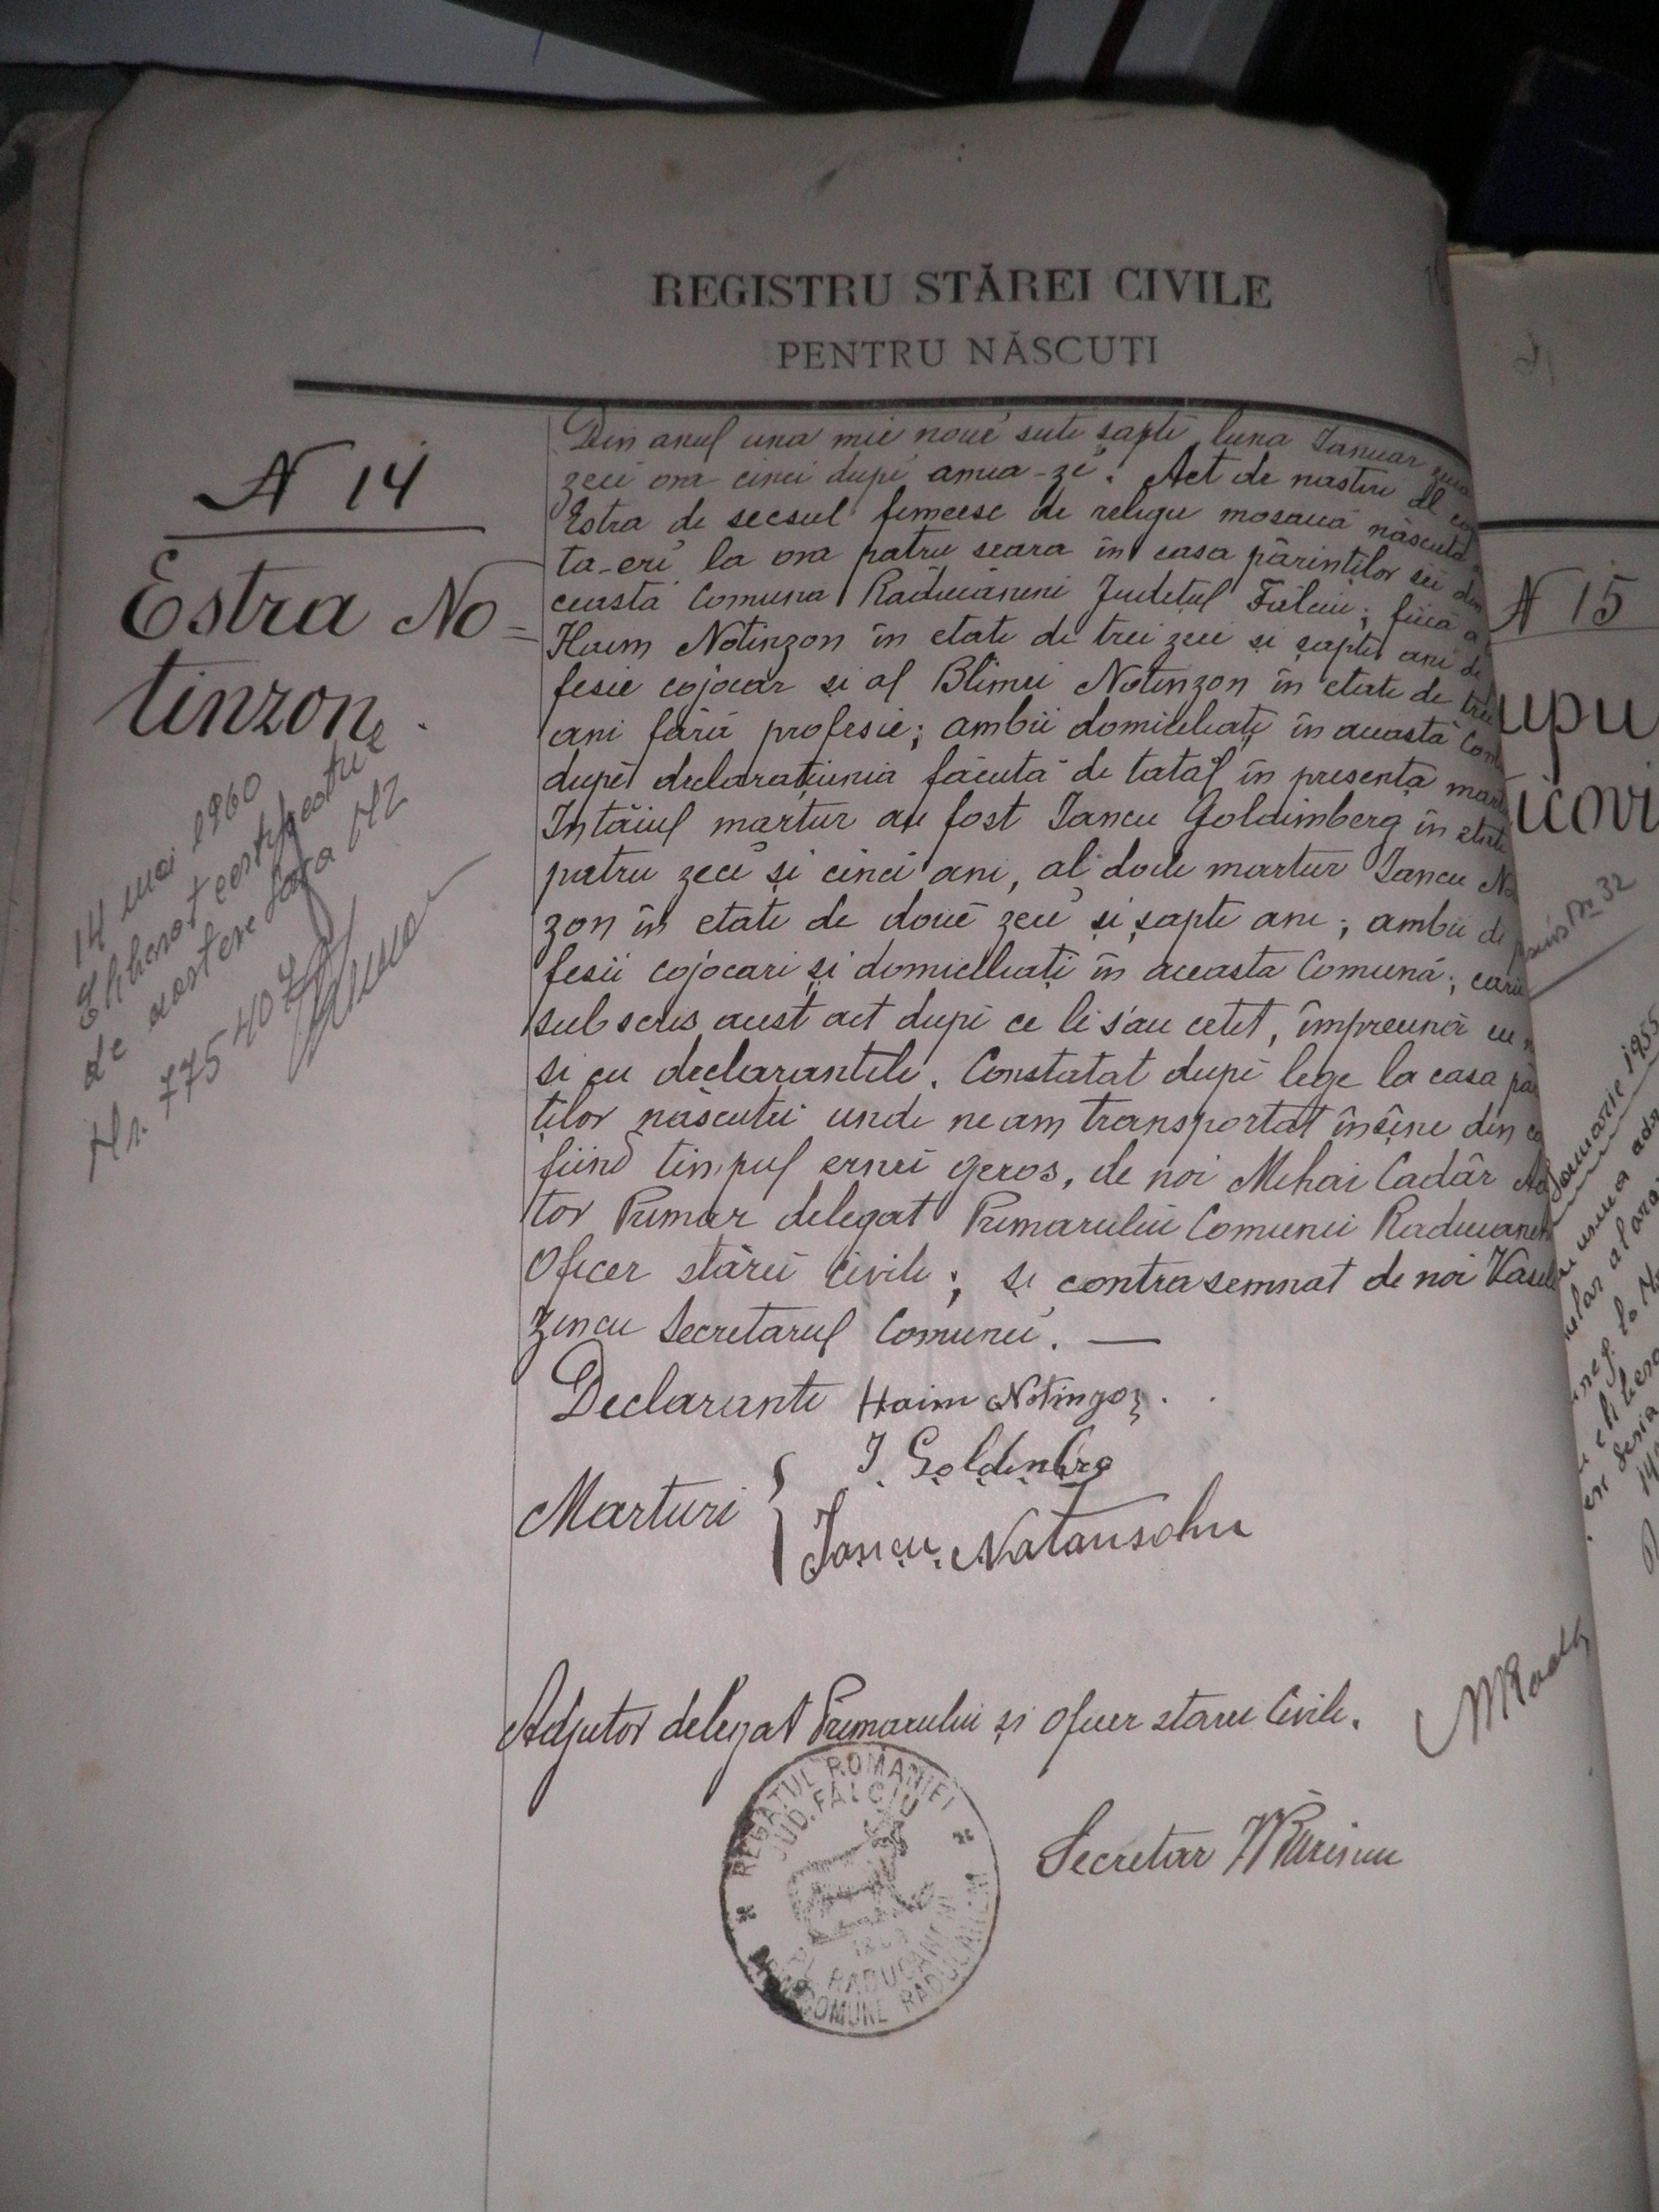 REGISTRU STĂREI CIVILE
PENTRU NĂSCUȚI
N 14
Estra No=
tinzon.
14 mai 1960
Eliberat certificatul
de nastere
Nr.
Din anul una mie nouĕ sute șapte luna Ianuar ziua
zeci ora cinci dupĕ amia-zĭ. Act de nastere al
Estra de secsul femeesc de religie mosaică născută
ta-erĭ la ora patru seara în casa părinților sei din
ceastă Comuna Răducăneni Județul Fălciu; fiica a
Haim Notinzon în etate de trei zeci și șapte ani de
fesie cojocar și al Blimei Notinzon în etate de trei
ani fără profesie; ambii domiciliați în această Com
dupĕ declarațiunia făcută de tatăl în presența mart
Intăiul martur au fost Iancu Goldimberg în etate
patru zeci și cinci ani, al doile martur Iancu No
zon în etate de douĕ zeci și șapte ani; ambii de
fesii cojocari și domiciliați în aceasta Comună; carii
subscris acest act dupĕ ce li s'au cetit, împreună cu n
si cu declarantele. Constatat dupĕ lege la casa pă
ților născutei unde ne am transportat însine din ca
fiind timpul ernei geros, de noi Mihai Cadăr
tor Primar delegat Primarului Comunei Raducanen
Oficer stărei Civile; și contrasemnat de noi Vasile
Secretarul Comunei. —
Declarante Haim Notinzon.
Marturi { I. Goldenbrg
Iancu Natansohn
Adjutor delegat Primarului și Oficer starei Civile.
REGATUL ROMÂNIEI
JUD. FĂLCIU
RADUCANENI
COMUNE RADUCANENI
Secretar
N 15
upu
icovi
Nr. 32
Ianuarie 1955